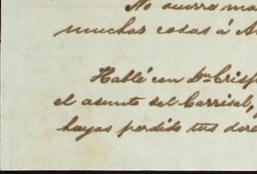 No ocurre
muchas cosas á
Hablé con Dn Crisp
el asunto del Carrisel,
hayas perdido tus dere